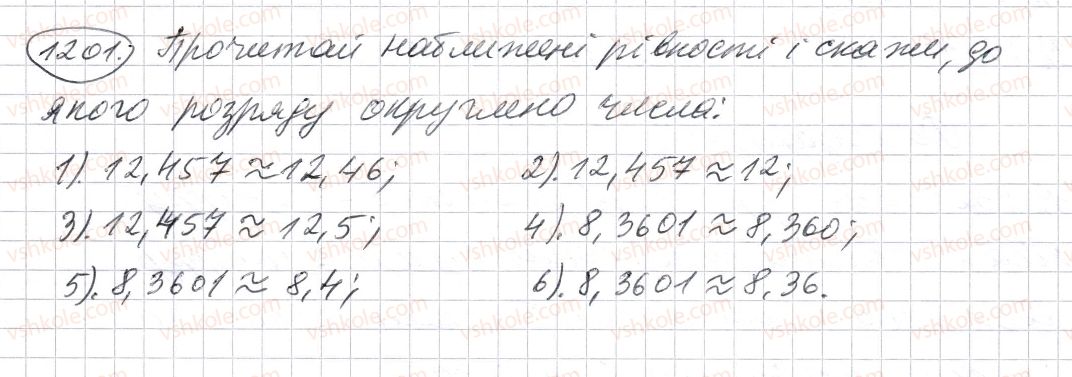 1201. Прочитай наближені рівності і скажи, до
якого розряду округлено числа:
1). 12,457 ≈ 12,46; 2). 12,457 ≈ 12;
3). 12,457 ≈ 12,5; 4). 8,3601 ≈ 8,360;
5). 8,3601 ≈ 8,4; 6). 8,3601 ≈ 8,36.